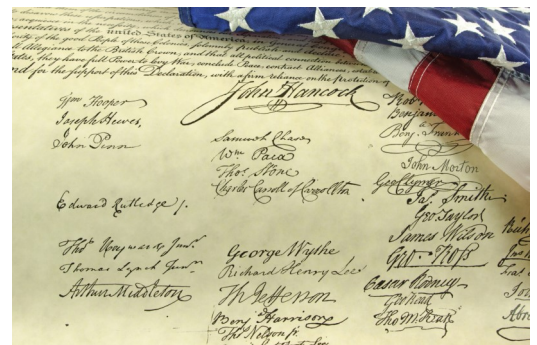 united States of America, in General
good People of these Colonies, solemnly publish
Allegiance to the British Crown, and that all political connection
they have full Power to levy War, conclude Peace, contract Alliances,
for the support of this Declaration, with a firm reliance on the protection of
John Hancock
Wm Hooper
Joseph Hewes,
John Penn
Edward Rutledge /.
Thos Heyward Junr.
Thomas Lynch Junr.
Arthur Middleton
Samuel Chase
Wm Paca
Thos Stone
Charles Carroll of Carrollton
George Wythe
Richard Henry Lee
Th Jefferson
Benj Harrison
Thos Nelson jr
Robt
Benjamin
Benj. Frank
John Morton
Geo Clymer
Jas Smith
Geo Taylor
James Wilson
Geo. Ross
Caesar Rodney
Geo Read
Tho M:Kean